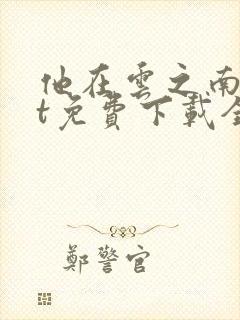 他在雲之南
t免費下載全
鄭警官